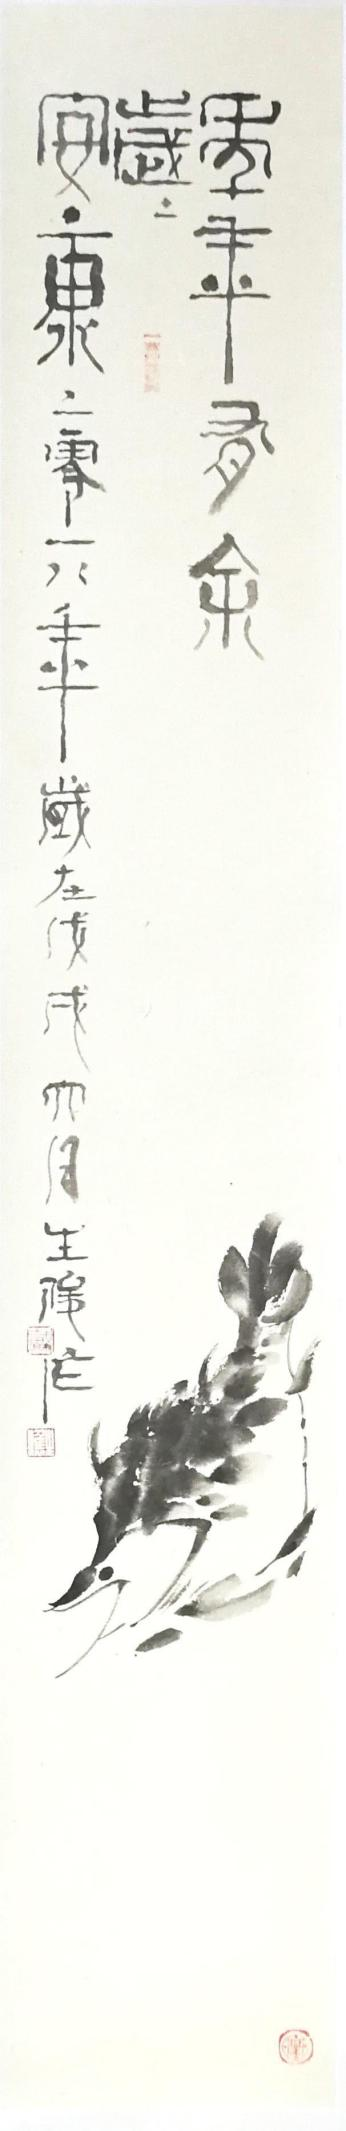 年年有余
歲歲
安康二零一八年歲在戊戌六月生俊作